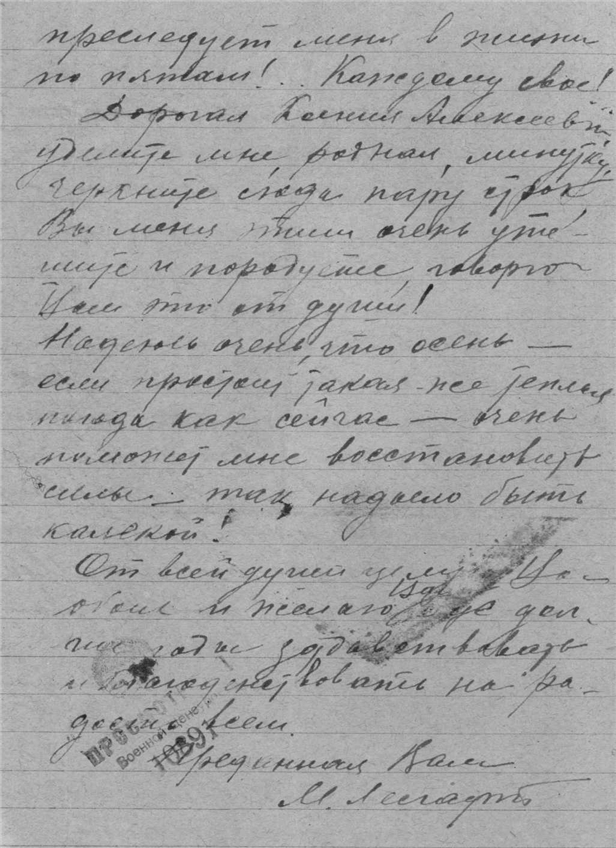 преследует меня в жизни
по пятам!.. Каждому свое!
Дорогая Ксения Алексеевна,
уделите мне, родная, минутку,
черкните сюда пару строк,
Вы меня этим очень уте-
шите и порадуете, говорю
Вам это от души!
Надеюсь очень, что осень —
если простоит такая-же теплая
погода как сейчас — очень
поможет мне восстановить
силы — так надоело быть
калекой!
От всей души целую Ва-
и желаю Вам дол-
гие годы здравствовать
и благоденствовать на ра-
дость всем.
Преданная Вам
М. Лесгафт
ПРОСМОТРЕНО
Военной Цензурой
10891